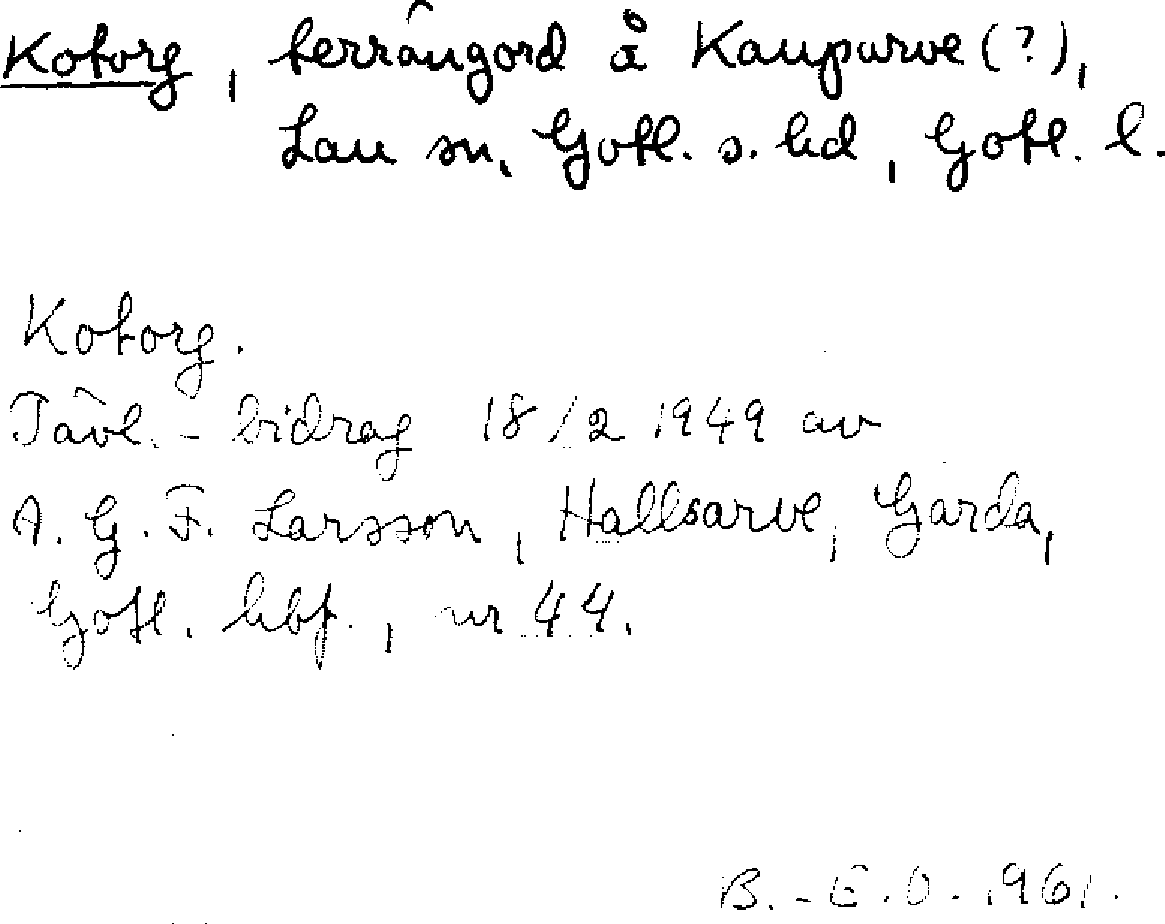 Kotorg, terrängord å Kauparve (?),
Lau sn, Gotl. s. hd, Gotl. l.
Kotorg.
Tävl.-bidrag 18/2 1949 av
A. G. F. Larsson, Hallsarve, Garda,
Gotl. hbf., nr 44.
B.-E. O. 1961.